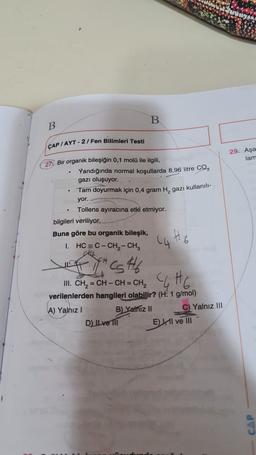 B
B
ÇAP / AYT - 2 / Fen Bilimleri Testi
27. Bir organik bileşiğin 0,1 molü ile ilgili,
• Yandığında normal koşullarda 8,96 litre CO₂
gazı oluşuyor.
• Tam doyurmak için 0,4 gram H₂ gazı kullanılı-
yor.
• Tollens ayıracına etki etmiyor.
bilgileri veriliyor.
Buna göre bu organik bileşik,
I. HC ≡ C – CH₂ – CH₃
C₄H₆
II.
CH
C₅H₆
III. CH₂ = CH – CH = CH₂
C₄H₆
verilenlerden hangileri olabilir? (H: 1 g/mol)
A) Yalnız I
B) Yalnız II
C) Yalnız III
D) II ve III
E) I, II ve III
29. Aşa
lam
ÇAP